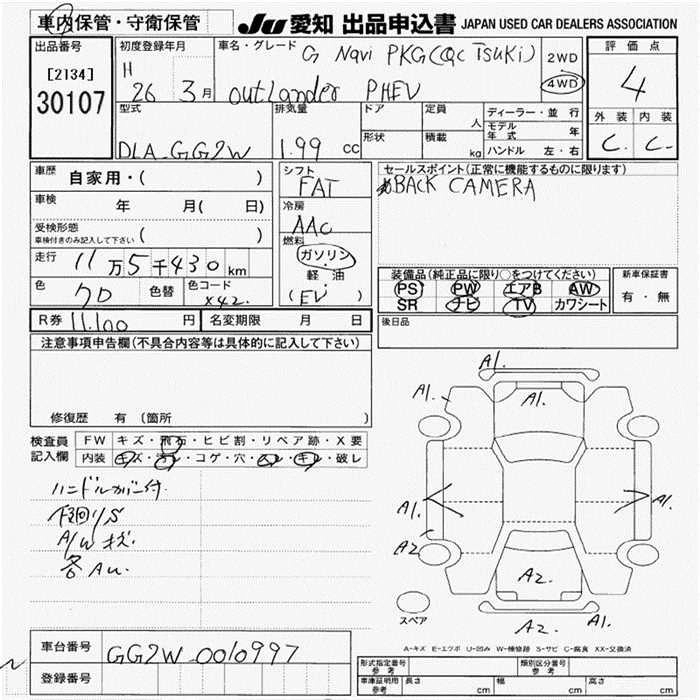 車内保管・守衛保管
JU 愛知 出品申込書 JAPAN USED CAR DEALERS ASSOCIATION
出品番号
[2134]
30107
初度登録年月
H
26 3月
車名・グレード G Navi PKG(QC Tsuki)
outlander PHEV
2WD
4WD
評価点
4
外装 内装
C C-
型式
DLA-GG2W
排気量
1.99 cc
ドア
形状
定員
人
積載
kg
ディーラー・並行
モデル年式 年
ハンドル 左・右
車歴 自家用・( )
車検 年 月( 日)
受検形態
車検付きのみ記入して下さい ( )
走行 11万5千430km
色 クロ 色替 色コード X42.
シフト
FAT
冷房
AAC
燃料
ガソリン
軽油
(EV)
セールスポイント(正常に機能するものに限ります)
BACK CAMERA
装備品(純正品に限り○をつけてください)
PS PW エアB AW
SR ナビ TV カワシート
新車保証書
有・無
後日品
R券 11,100 円 名変期限 月 日
注意事項申告欄(不具合内容等は具体的に記入して下さい)
修復歴 有(箇所 )
検査員記入欄
FW キズ・飛石・ヒビ割・リペア跡・X要
内装 キズ・汚レ・コゲ・穴・スレ・キレ・破レ
ハンドルカバー付
下廻りS
A/Wキズ
各AU.
A1.
A1. A1. A1.
A1. A1.
A2
A2.
A2. A1.
スペア
A-キズ E-エクボ U-凹み W-補修跡 S-サビ C-腐食 XX-交換済
車台番号 GG2W-0010997
登録番号
形式指定番号 参考
類別区分番号 参考
車庫証明用 参考 長さ cm 幅 cm 高さ cm